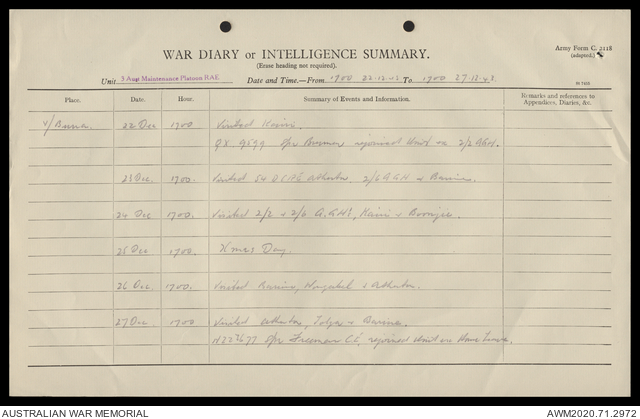 WAR DIARY or INTELLIGENCE SUMMARY.
(Erase heading not required).
Army Form C. 2118
(adapted.)
Unit 3 Aust Maintenance Platoon RAE Date and Time.—From 1700 22-12-43 To 1700 27-12-43.
Place. Date. Hour. Summary of Events and Information. Remarks and references to Appendices, Diaries, &c.
22 Dec 1700 Visited Kairi.
QX 9599 Spr rejoined Unit ex 2/2 AGH.
23 Dec. 1700. Visited 54 Atherton, 2/6 AGH & Barrine.
24 Dec 1700. Visited 2/2 & 2/6 A.G.H's, Kairi & Boonjie.
25 Dec 1700. Xmas Day.
26 Dec 1700. Visited Barrine, Wongabel & Atherton.
27 Dec 1700 Visited Atherton, Tolga & Barrine.
Spr Freeman C.E. rejoined Unit ex Home Leave.
AUSTRALIAN WAR MEMORIAL
AWM2020.71.2972